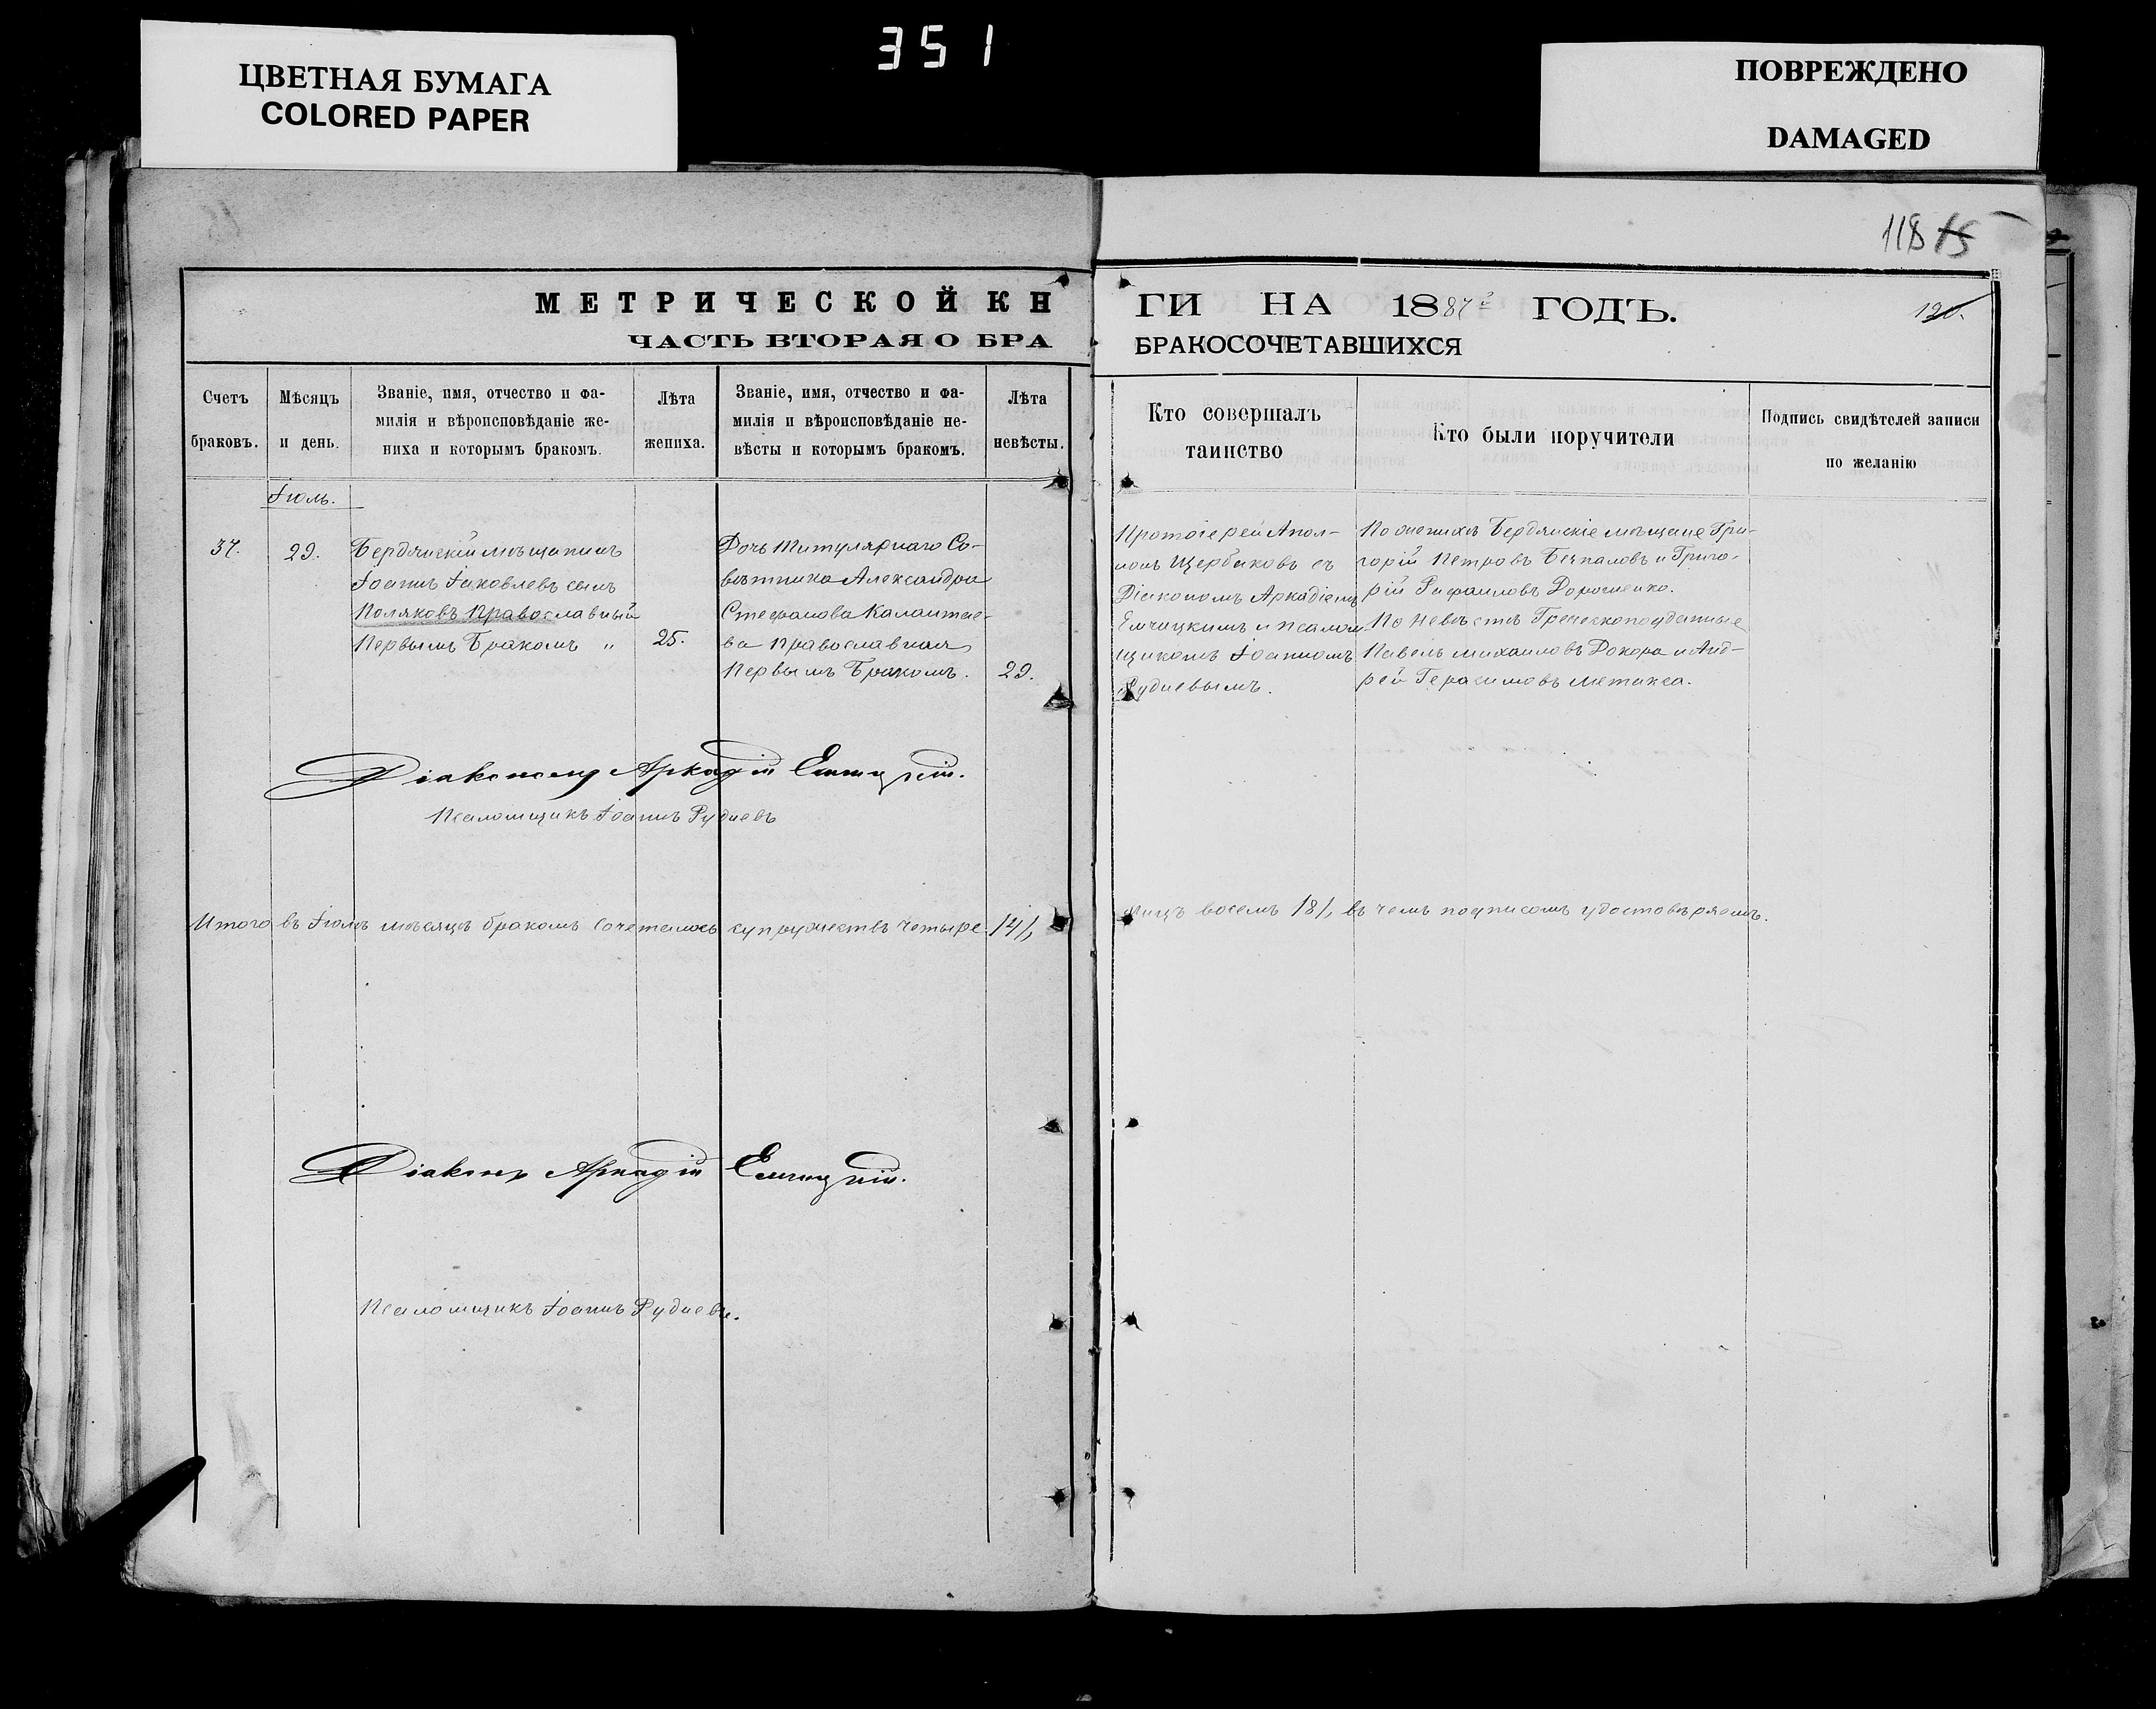 ЦВЕТНАЯ БУМАГА
COLORED PAPER
351
ПОВРЕЖДЕНО
DAMAGED
118 15
МЕТРИЧЕСКОЙ КН
ЧАСТЬ ВТОРАЯ О БРА
ГИ НА 1887 ГОДЪ.
120.
БРАКОСОЧЕТАВШИХСЯ
Счетъ браковъ.
Мѣсяцъ и день.
Званіе, имя, отчество и фа-
милія и вѣроисповѣданіе же-
ниха и которымъ бракомъ.
Лѣта жениха.
Званіе, имя, отчество и фа-
милія и вѣроисповѣданіе не-
вѣсты и которымъ бракомъ.
Лѣта невѣсты.
Кто совершалъ
таинство
Кто были поручители
Подпись свидѣтелей записи
по желанію
Іюль.
37.
29.
Бердянскій мѣщанинъ
Іоаннъ Іаковлевъ сынъ
Поляковъ Православный
Первымъ Бракомъ "
25.
Дочь Титулярнаго Со-
вѣтника Александра
Стефанова
ва Православная
Первымъ Бракомъ.
29.
Протоіерей Апол-
лонъ Щербаковъ съ
Діакономъ Аркадіемъ
Емчицкимъ и Псалом-
щикомъ Іоанномъ
Рудневымъ.
По женихѣ Бердянскіе мѣщане Гри-
горій Петровъ Безпаловъ и Григо-
рій Рафаиловъ Дорошенко.
По Невѣстѣ Греческоподданные
Павелъ Михаиловъ Докора и Анд-
рей Герасимовъ Метакса.
Діаконъ Аркадій Емчицкій.
Псаломщикъ Іоаннъ Рудневъ
Итого въ Іюлѣ мѣсяцѣ бракомъ сочеталось супружествъ четыре /4/,
лицъ восемь /8/, въ чемъ подписомъ удостовѣряемъ.
Діаконъ Аркадій Емчицкій.
Псаломщикъ Іоаннъ Рудневъ.